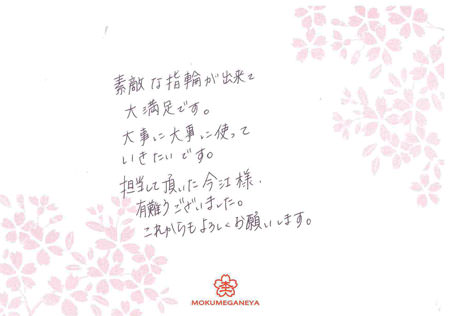 素敵な指輪が出来て
大満足です。
大事に大事に使って
いきたいです。
担当して頂いた今江様、
有難うございました。
これからもよろしくお願いします。
MOKUMEGANEYA